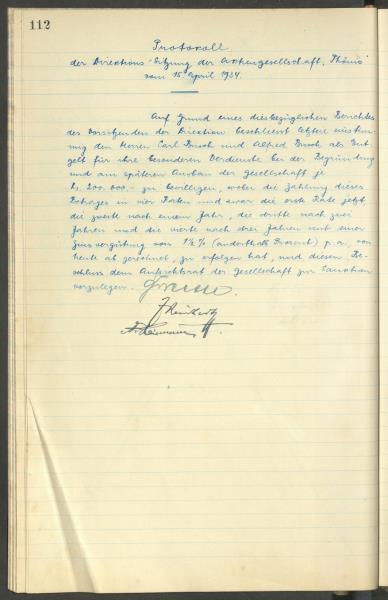 112
Protokoll
der Direktions-Sitzung der Aktiengesellschaft „Phönix“
vom 15. April 1934
Auf Grund eines diesbezüglichen Berichtes
des Vorsitzenden der Direktion beschliesst letztere einstim-
mig den Herren Carl Busch und Alfred Busch als Ent-
gelt für ihre besonderen Verdienste bei der Begründung
und am späteren Ausbau der Gesellschaft je
200.000.- zu bewilligen, wobei die Zahlung dieses
Betrages in vier Raten und zwar die erste Rate jetzt,
die zweite nach einem Jahr, die dritte nach zwei
Jahren und die vierte nach drei Jahren mit einer
Zinsvergütung von 1½% (anderthalb Prozent) p. a., von
heute ab gerechnet, zu erfolgen hat, und diesen Be-
schluss dem Aufsichtsrat der Gesellschaft zur Sanktion
vorzulegen.